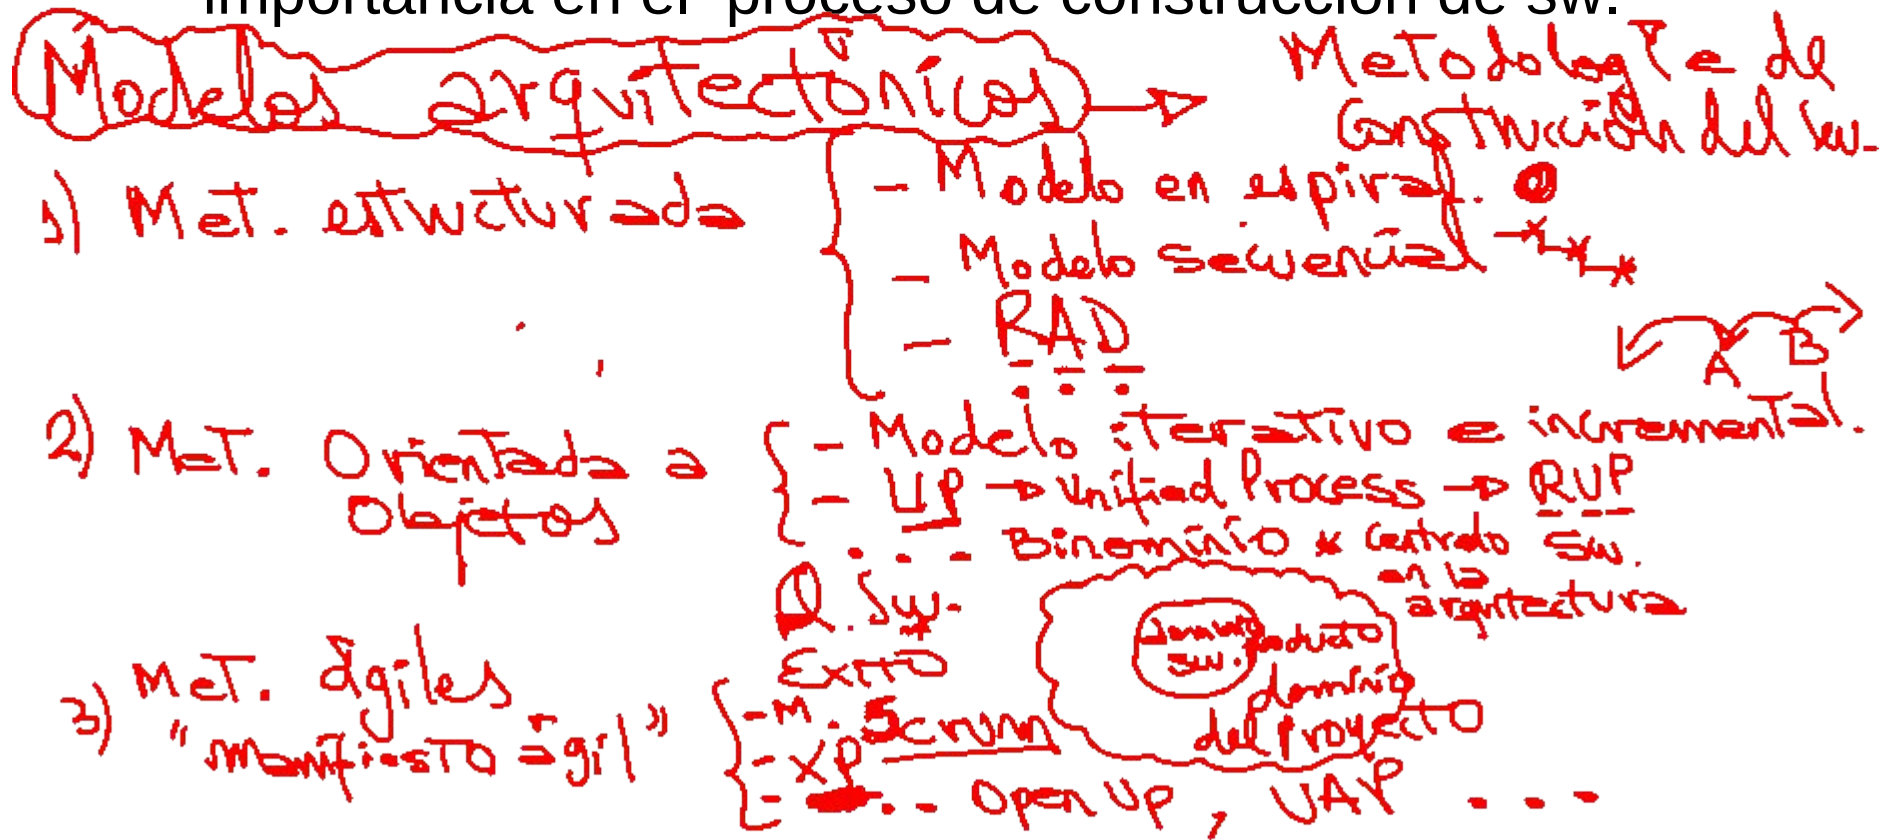 importancia en el proceso de construcción de sw.
Modelos arquitectónicos → Metodología de
Construcción del sw.
1) Met. estructurada
- Modelo en espiral.
- Modelo secuencial
- RAD
...
A B
2) Met. Orientada a
Objetos
- Modelo iterativo e incremental.
- UP → Unified Process → RUP
... - Binominio * Centrado sw.
en la
arquitectura
Q. Sw.
Exito
dominio
sw. producto
dominio
del proyecto
3) Met. ágiles
"manifiesto ágil"
- M. Scrum
- XP
- .. - Open Up, UAP ...